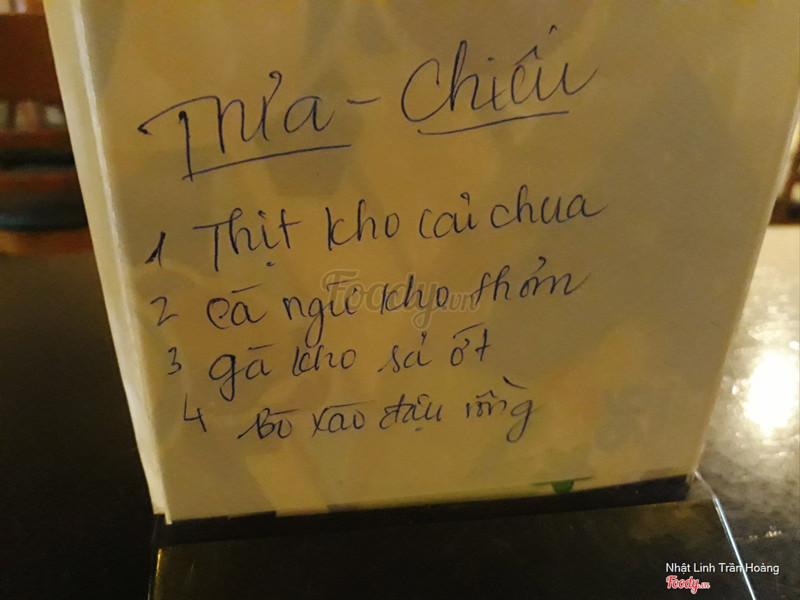 Trưa - Chiều
1 Thịt kho cải chua
2 Cá ngừ kho thơm
3 gà kho sả ớt
4 Bò xào đậu rồng
Foody.vn
Nhật Linh Trần Hoàng
Foody.vn